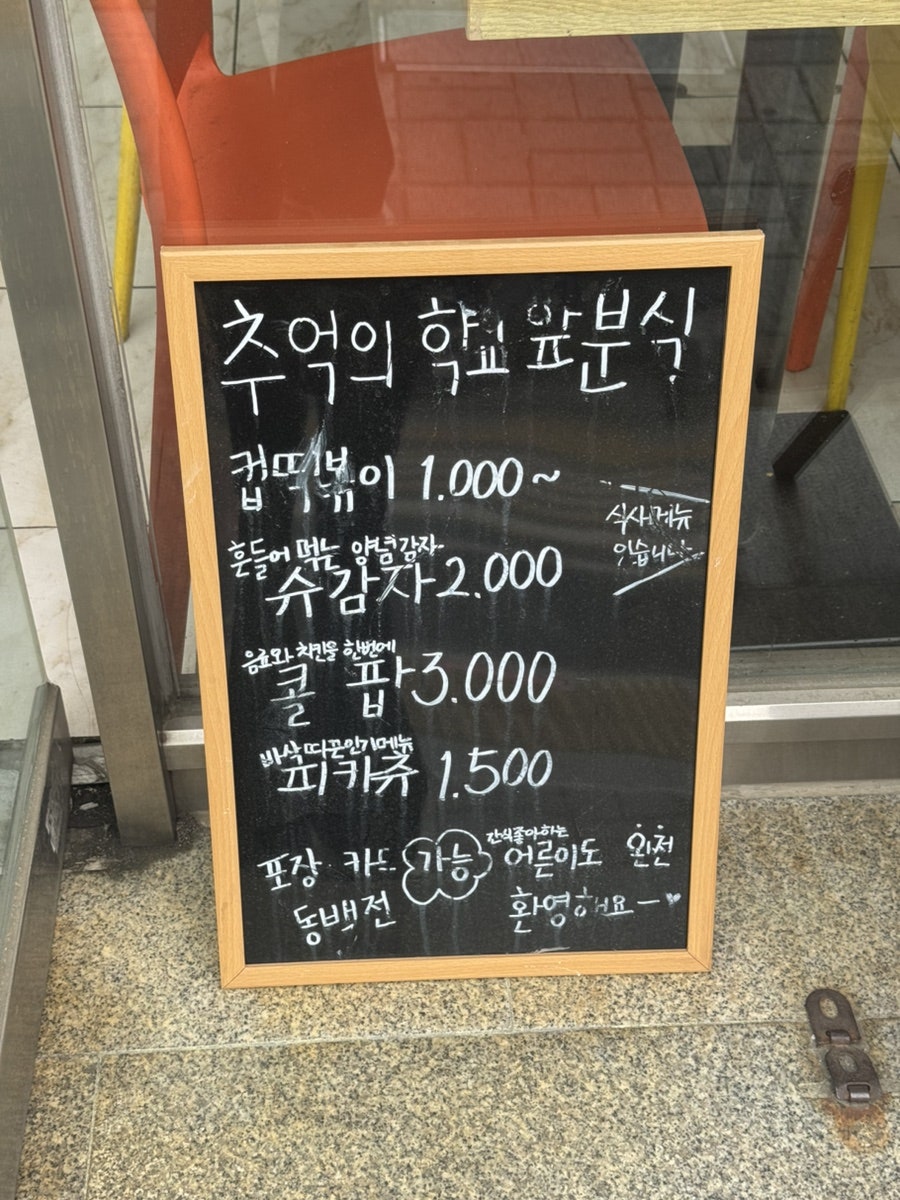 추억의 학교 앞 분식
컵떡볶이 1.000~
식사메뉴
있습니다
흔들어 먹는 양념감자
슈감자 2.000
음료와 치킨을 한번에
콜팝 3.000
바삭 따끈 인기메뉴
피카츄 1.500
포장 카드 가능
동백전
간식좋아하는
어른이도 완전
환영해요ー♥